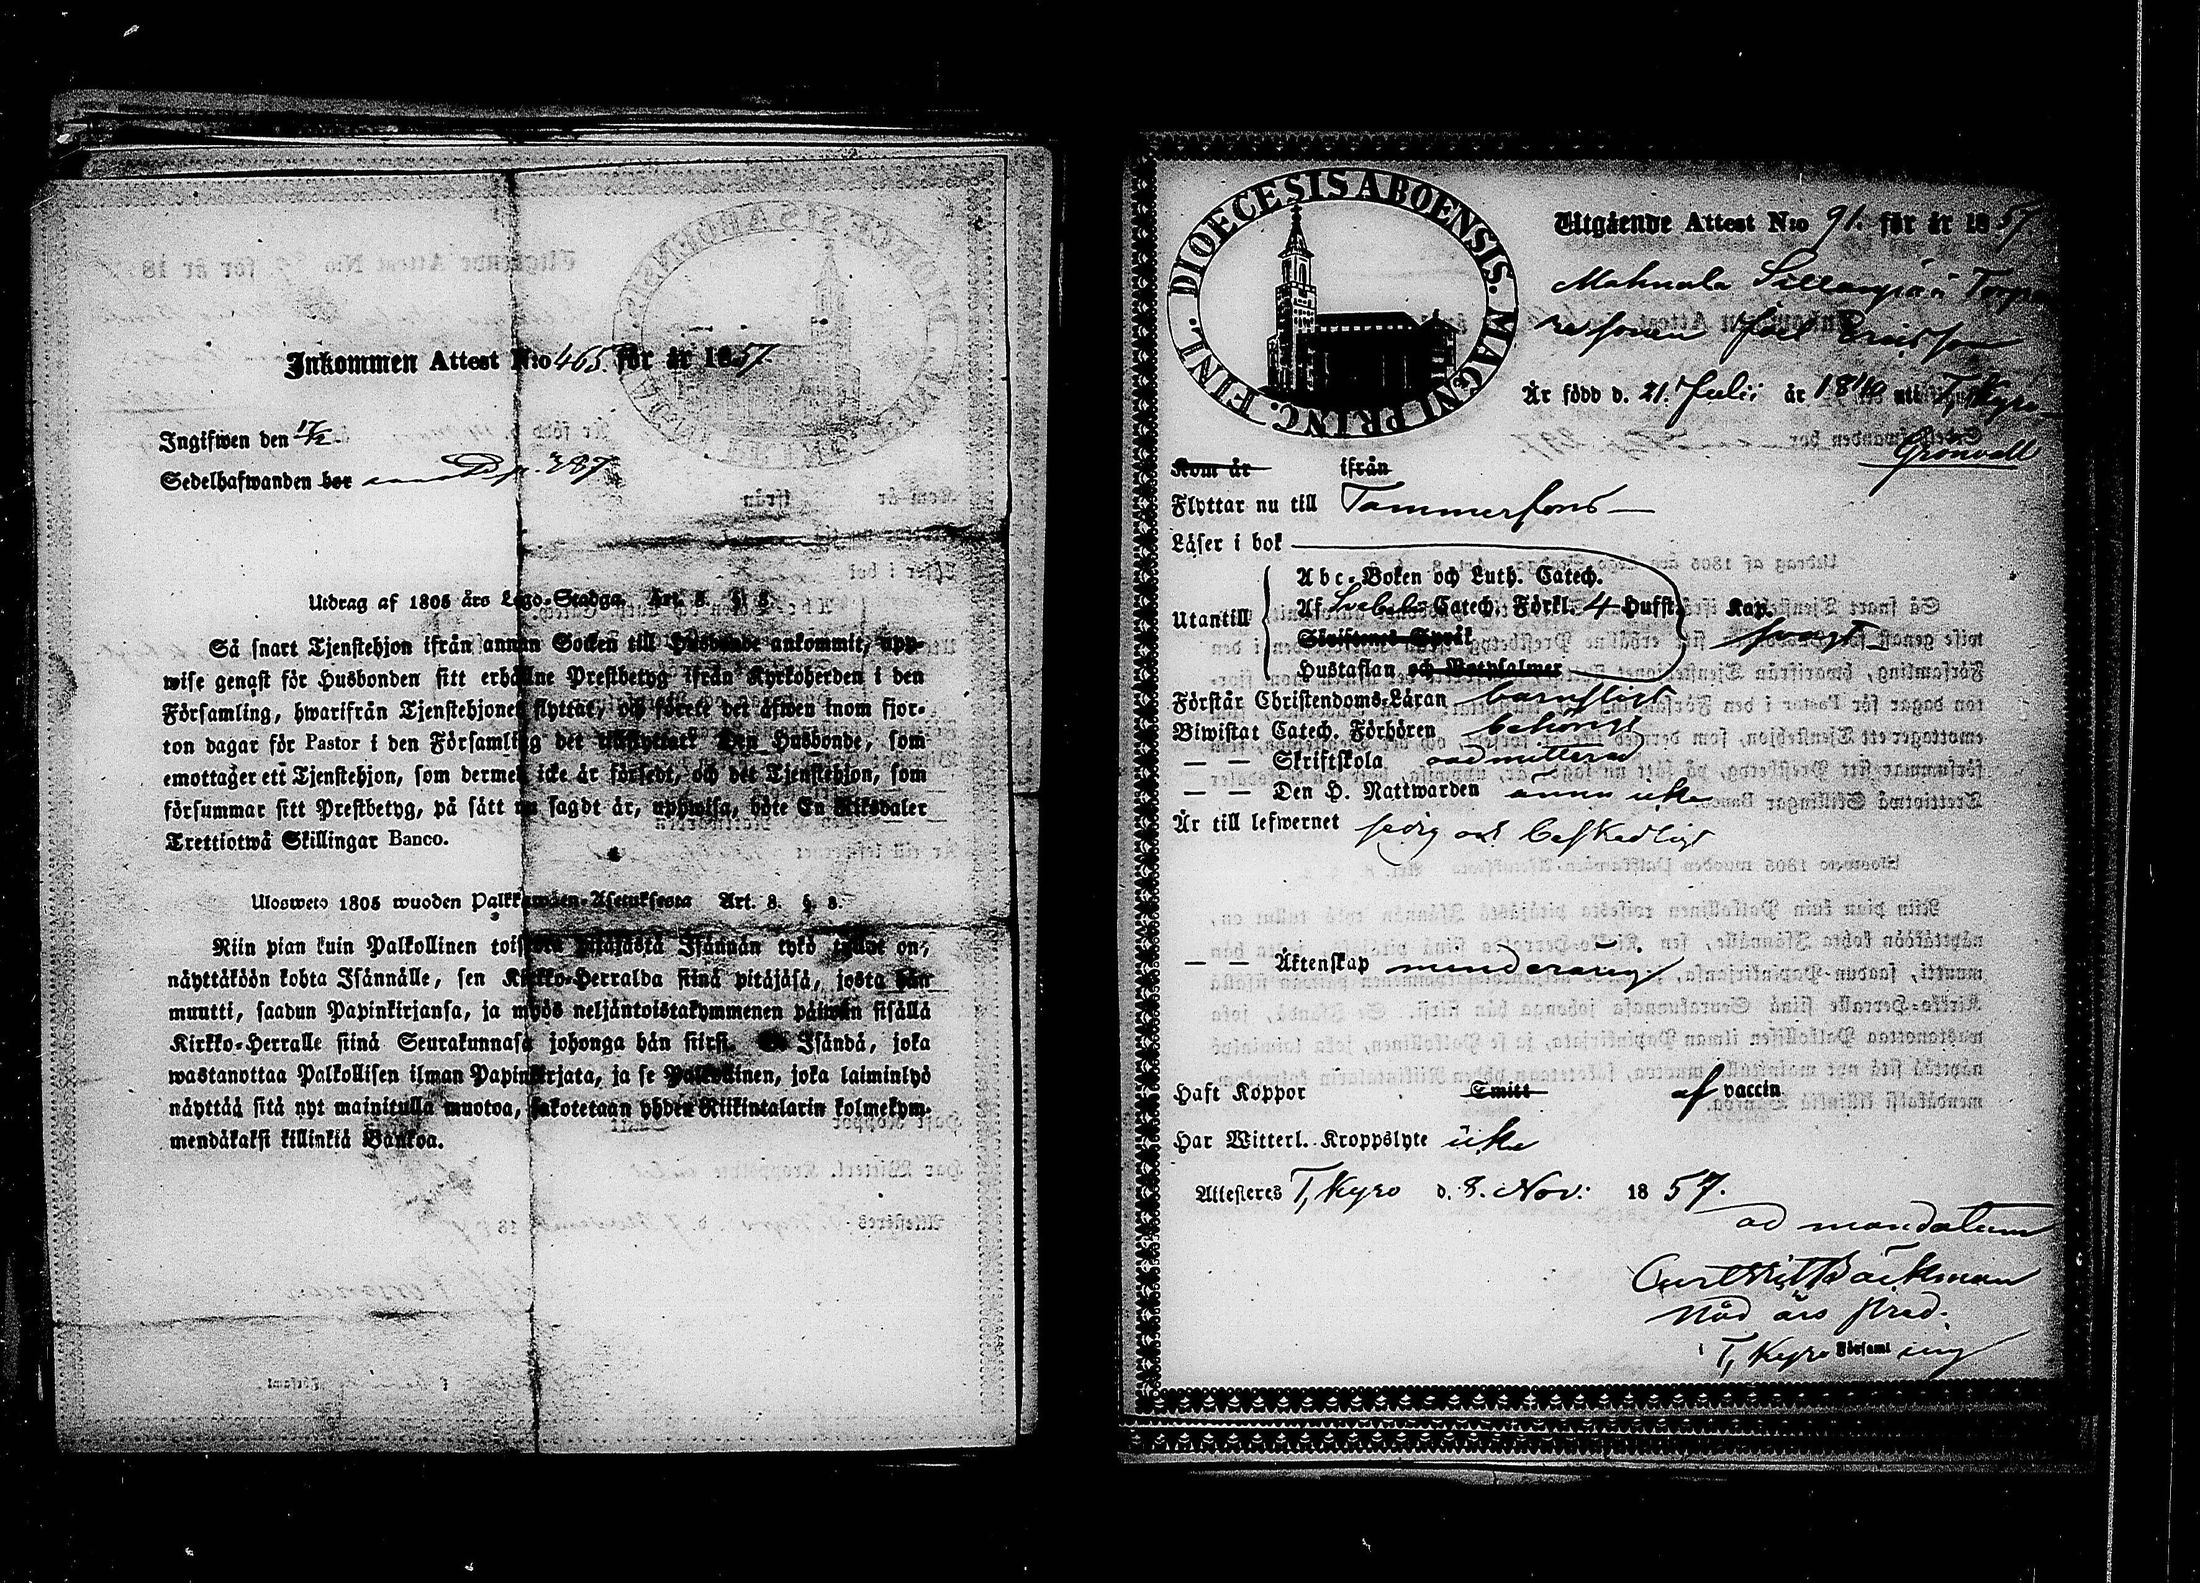 Inkommen Attest N:o 465. för år 1857
Ingifwen den 17/12
Sedelhafwanden bor p. 387
Utdrag af 1805 års Lego-Stadga. Art. 8. §. 8.
Så snart Tjenstehjon ifrån annan Socken till Husbonde ankommit, upp-
wise genast för Husbonden sitt erhållne Prestbetyg ifrån Kyrkoherden i den
Församling, hwarifrån Tjenstehjonet flyttat, och förete det äfwen inom fjor-
ton dagar för Pastor i den Församling det tillflyttat. Den Husbonde, som
emottager ett Tjenstehjon, som dermed icke är försedt, och det Tjenstehjon, som
försummar sitt Prestbetyg, på sätt nu sagdt är, uppwisa, böte En Riksdaler
Trettiotwå Skillingar Banco.
Ulosweto 1805 wuoden Palkkawäen-Asetuksesta Art. 8. §. 8.
Niin pian kuin Palkollinen toisesta pitäjästä Isännän tykö tullut on,
näyttäköön kohta Isännälle, sen Kirkko-Herralda siinä pitäjäsä, josta hän
muutti, saadun Papinkirjansa, ja myös neljäntoistakymmenen päiwän sisällä
Kirkko-Herralle siinä Seurakunnasa johonga hän siirsi. Se Isändä, joka
wastanottaa Palkollisen ilman Papinkirjata, ja se Palkollinen, joka laiminlyö
näyttää sitä nyt mainitulla muotoa, sakotetaan yhden Riikintalarin kolmekym-
mendäkaksi killinkiä Bankoa.
DIOECESIS ABOENSIS. MAGNI PRINC. FINL.
Utgående Attest N:o 91. för år 1857
Mahnala Sillanpää Torpa-
resonen Joel Ericsson
Är född d. 21. Julii år 1840 uti T, Kyro
Grönvall
Kom år ifrån
Flyttar nu till Tammerfors
Läser i bok
Abc-Boken och Luth. Catech.
Utantill Af Svebelii Catech. Förkl. 4 Hufst. Kap.
Skriftenes Språk svagt
Hustaflan och Botpsalmer
Förstår Christendoms-Läran barnsligt
Biwistat Catech. Förhören behörigt
— — Skriftskola admitterad
— — Den H. Nattwarden ännu icke
Är till lefwernet sedig och beskedligt
— — Äktenskap minderårig.
Haft Koppor Smitt af vaccin
Har Witterl. Kroppslyte icke
Attesteres T, Kyro d. 8. Nov. 1857.
ad mandatum
Curt Wilh Bäckman
Nåd års pred.
i T, Kyro Församl ing